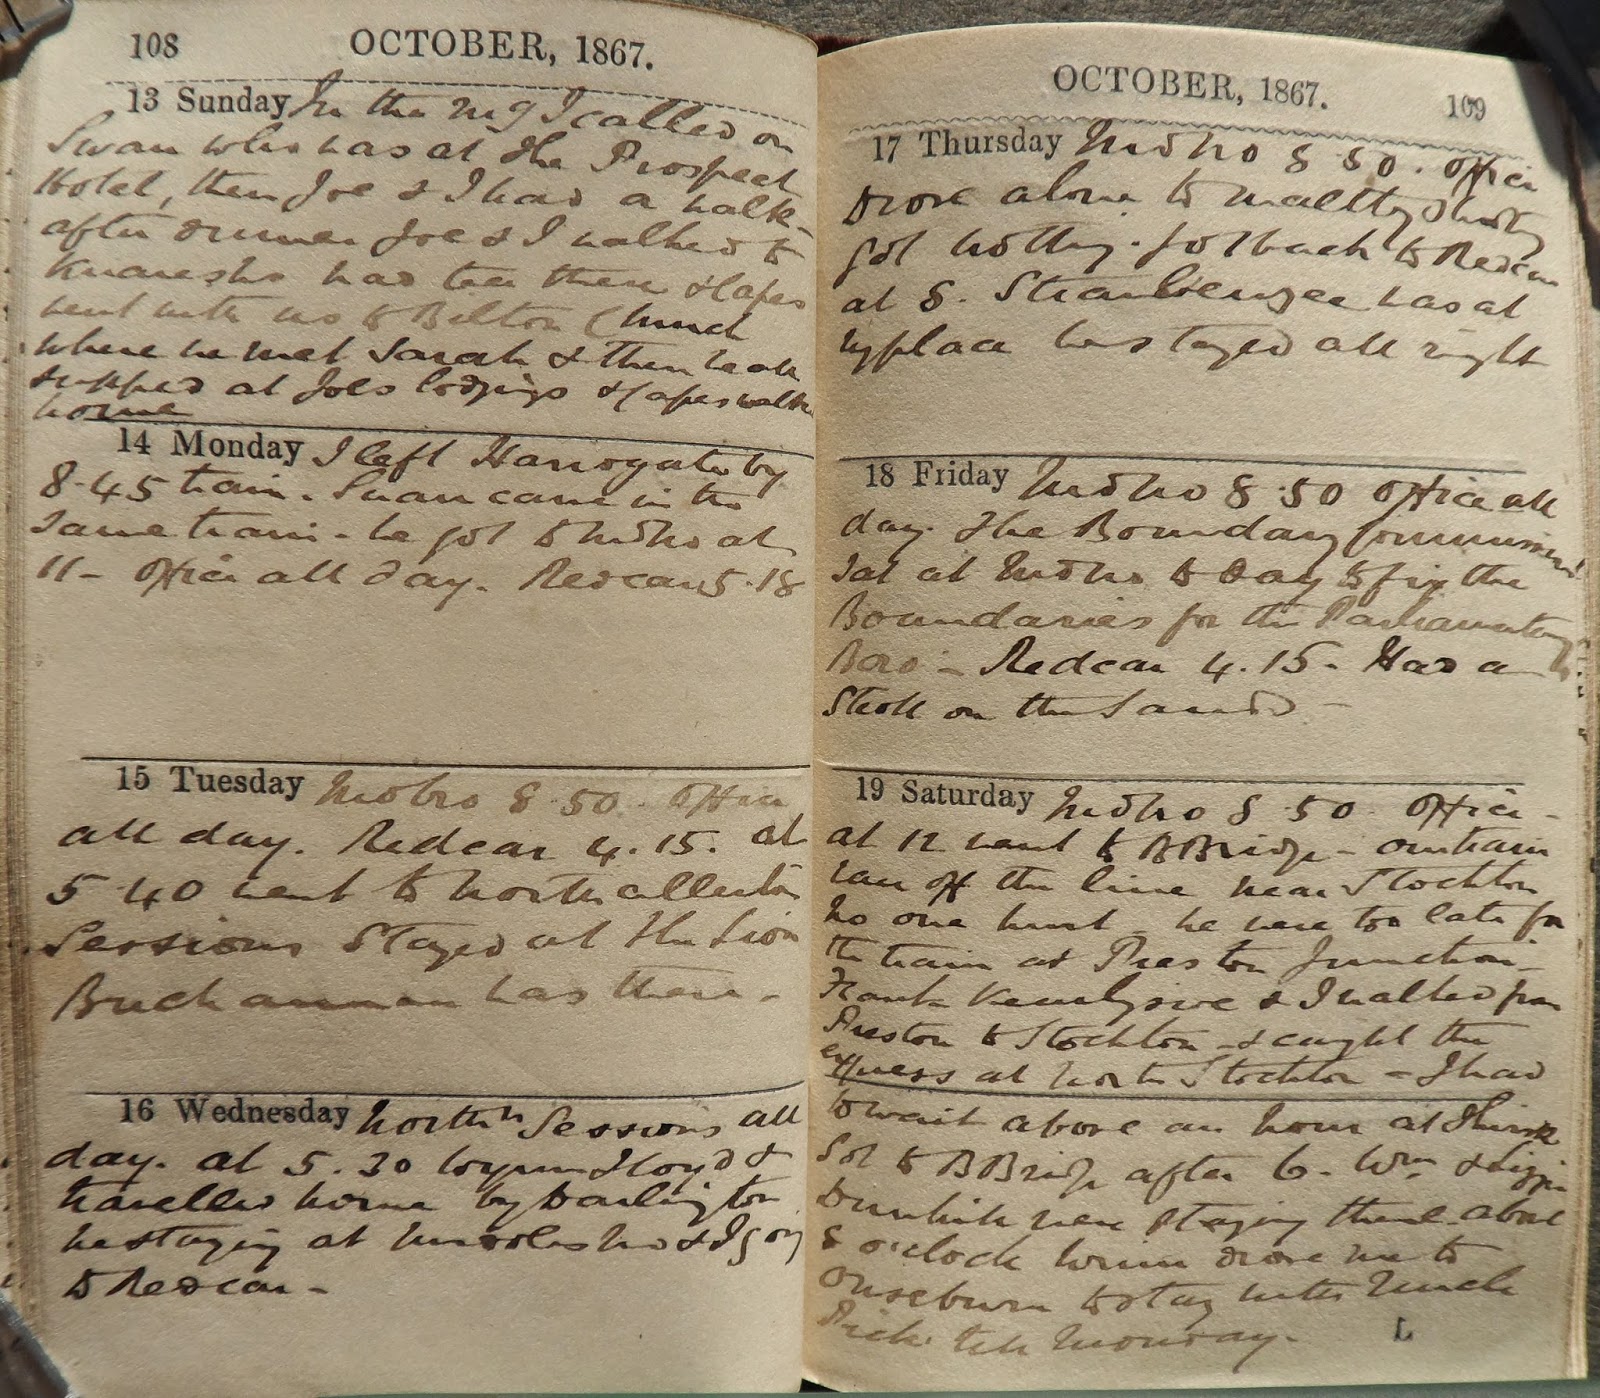 108 OCTOBER, 1867.
13 Sunday In the mg I called on
Swan who was at the Prospect
Hotel, then Joe & I had a walk -
after dinner Joe & I walked to
Knaresbro had tea there & Capes
went with us to Bilton Church
where we met Sarah & then we all
supped at Joes lodgings & Capes walked
home
14 Monday I left Harrogate by
8.45 train. Swan came in the
same train - we got to Mdbro at
11 - Office all day. Redcar 5.18
15 Tuesday Mdbro 8 50. Office
all day. Redcar 4.15. at
5 40 went to Northallerton
Sessions Stayed at the Lion
Buchannan was there -
16 Wednesday North Sessions all
day. at 5.30 Lloyd &
travelled home by Darlington
he staying at Middlesbro & I going
to Redcar -
OCTOBER, 1867. 109
17 Thursday Mdbro 8 50. Office
Drove alone to Maltby
got nothing. Got back to Redcar
at 8. Straubenzee was at
my place & stayed all night
18 Friday Mdbro 8.50 Office all
day. The Boundary Commissioners
sat at Mdbro to day to fix the
Boundaries for the Parliamentary
Boro - Redcar 4.15 - Had a
Stroll on the Sands -
19 Saturday Mdbro 8 50 Office -
at 12 went to BBridge - our train
ran off the line near Stockton
no one hurt - we were too late for
the train at Preston Junction -
Frank & I walked from
Preston to Stockton - & caught the
express at North Stockton - I had
to wait above an hour at Thirsk
Got to BBridge after 6. Wm & Lizzie
were staying there - about
8 o'clock drove me to
Ouseburn to stay with Uncle
Dick till Monday.
L